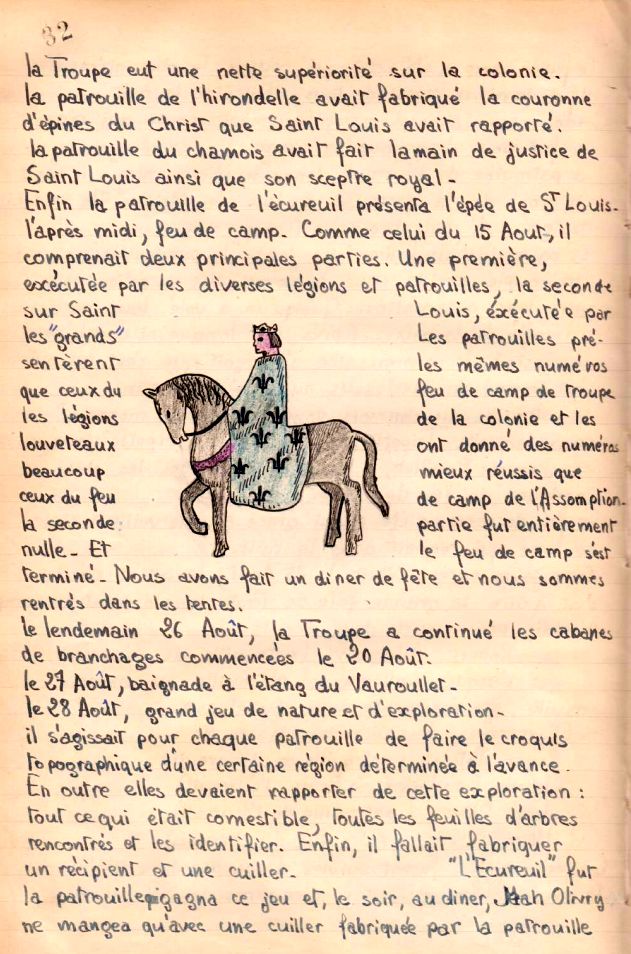 32
la Troupe eut une nette supériorité sur la colonie.
la patrouille de l'hirondelle avait fabriqué la couronne
d'épines du Christ que Saint Louis avait rapporté.
la patrouille du chamois avait fait lamain de justice de
Saint Louis ainsi que son sceptre royal -
Enfin la patrouille de l'écureuil présenta l'épée de St Louis.
l'après midi, feu de camp. Comme celui du 15 Aout, il
comprenait deux principales parties. Une première,
exécutée par les diverses légions et patrouilles, la seconde
sur Saint Louis, éxécutée par
les "grands" Les patrouilles pré-
sentèrent les mêmes numéros
que ceux du feu de camp de troupe
les légions de la colonie et les
louveteaux ont donné des numéros
beaucoup mieux réussis que
ceux du feu de camp de l'Assomption.
la seconde partie fut entièrement
nulle - Et le feu de camp s'est
terminé - Nous avons fait un diner de fête et nous sommes
rentrés dans les tentes.
le lendemain 26 Août, la Troupe a continué les cabanes
de branchages commencées le 20 Août.
le 27 Août, baignade à l'étang du Vauroullet -
le 28 Août, grand jeu de nature et d'exploration -
il s'agissait pour chaque patrouille de faire le croquis
topographique d'une certaine région déterminée à l'avance.
En outre elles devaient rapporter de cette exploration :
tout ce qui était comestible, toutes les feuilles d'arbres
rencontrés et les identifier. Enfin, il fallait fabriquer
un récipient et une cuiller. "L'Ecureuil" fut
la patrouille qui gagna ce jeu et, le soir, au diner, Olivry
ne mangea qu'avec une cuiller fabriquée par la patrouille